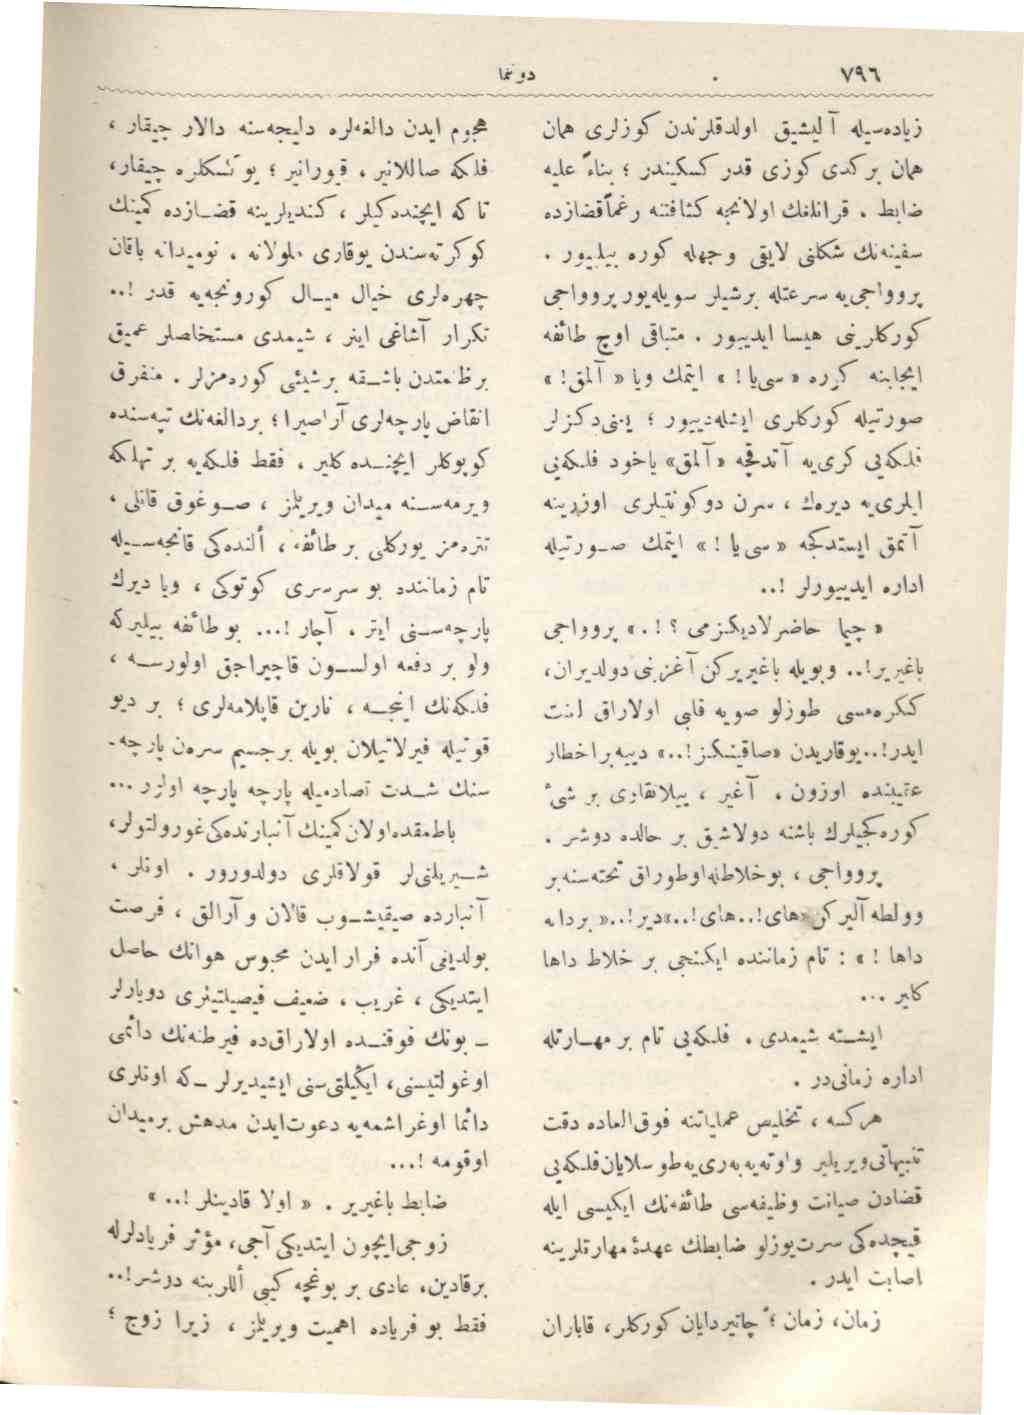 ٧٩٦
دوننما
زیاده‌سیله آلیشیق اولدقلرندن کوزلری همان
همان بر کدی کوزی قدر کسکیندر ؛ بناءً علیه
ضابط . قراکلغك اولانجه کثافتنه رغماً قضازده
سفینه‌نك شکلنی لایقی وجهله کوره بیلیور .
پروواجی‌یه سرعتله برشیلر سویله‌یور پروواجی
کورکلرینی هیسا ایدییور . متباقی اوچ طائفه
ایجابنه کوره « سی‌یا ! » ایتمك ویا « آلمق ! »
صورتیله کورکلری ایشله‌دییور ؛ یعنی دکزلر
فلکه‌یی کری‌یه آتدقجه « آلمق» یاخود فلکه‌یی
ایلری‌یه دیره‌ك ، سرن دوکونتیلری اوزرینه
آتمق ایستدکجه « سی‌یا ! » ایتمك صـورتیله
اداره ایدییورلر !..
« چیما حاضرلادیکزمی ؟ !. » پروواجی
باغیریر!.. وبویله باغیریرکن آغزینی دولدیران،
کنکره‌مسی طوزلو صویه قلبی اولاراق لعنت
ایدر!.. یوقاریدن «صاقینکز!..» دییه بر اخطار
عقیبنده اوزون ، آغیر ، ییلانقاوی بر شئ
کوره‌کجیلرك باشنه دولاشیق بر حالده دوشر .
پروواجی ، بو خلاطله اوطوراق تخته‌سنه بر
وولطه آلیرکن «های!.. های!..» دیر!.. « بر دانه
داها ! » : تام زماننده ایکنجی بر خلاط داها
کلیر ...
ایشـته شیمدی . فلکه‌یی تام بر مهـارتله
اداره زمانی‌در .
هرکسه ، تخلیص عملیاتنه فوق‌العاده دقت
تنبیهاتی ویریلیر واوته‌یه به‌ری‌یه طوسلایان فلکه‌یی
قضادن صیانت وظیفه‌سی طائفه‌نك ایکیسی ایله
قیچده‌کی سرت یوزلو ضابطك عهدهٔ مهارتلرینه
اصابت ایدر .
زمان، زمان ؛ چاتیردایان کورکلر، قاباران
هجوم ایدن دالغه‌لره دلیجه‌سنه دالار چیقار ،
فلکه صاللانیر ، قیورانیر ؛ یوکسکلره چیقار،
تا که ایچنده‌کیلر ، کندیلرینه قضـازده کمینك
کوکرته‌سندن یوقاری ملولانه ، نومیدانه باقان
چهره‌لری خیال میـال کورونجه‌یه قدر !..
تکرار آشاغی اینر ، شیمدی مستخلصلر عمیق
بر ظلمتدن باشـقه برشیئی کوره‌مزلر . متفرق
انقاض پارچه‌لری آراصیرا؛ بردالغه‌نك تپه‌سنده
کوپوکلر ایچنـده کلیر . فقط فلکه‌یه بر تهلکه
ویرمه‌سـنه میدان ویریلمز ، صـوغوق قانلی ،
تتره‌مز یورکلی بر طائفه ، ألنده‌کی قانجه‌سـیله
تام زماننده بو سرسری کوتوکی ، ویا دیرك
پارچه‌سـنی ایتر . آچار !... بو طائفه بیلیرکه
ولو بر دفعه اولسـون قاچیراجق اولورسـه ،
فلکه‌نك اینجـه ، نارین قاپلامه‌لری ؛ بر دیو
قوتیله فیرلاتیلان بویله بر جسیم سره‌ن پارچه-
سنك شـدت تصادمیله پارچه پارچه اولور ...
باطمقده‌اولان کمینك آنبارنده‌کی غورولتولر،
شـیریلتی‌لر قولاقلری دولدورور . اونلر ،
آنبارده صیقیشـوب قالان و آرالق ، فرصت
بولدیغی آنده فرار ایدن محبوس هوانك حاصل
ایتدیکی ، غریب ، ضعیف فیصیلتیلری دویارلر
ـ بونك فوقنـده اولاراق‌ده فیرطنه‌نك دائمی
اوغولتیسنی، ایکیلتی‌سنی ایشیدیرلر ـ که اونلری
دائما اوغراشمه‌یه دعوت‌ایدن مدهش برمیدان
اوقومه !...
ضابط باغیریر . « اولا قادینلر !.. »
زوجی‌ایچون ایتدیکی آجی، مؤثر فریادلرله
برقادین، عادی بر بوغچه کیبی أللرینه دوشر!..
فقط بو فریاده اهمیت ویریلمز ، زیرا زوج ؛